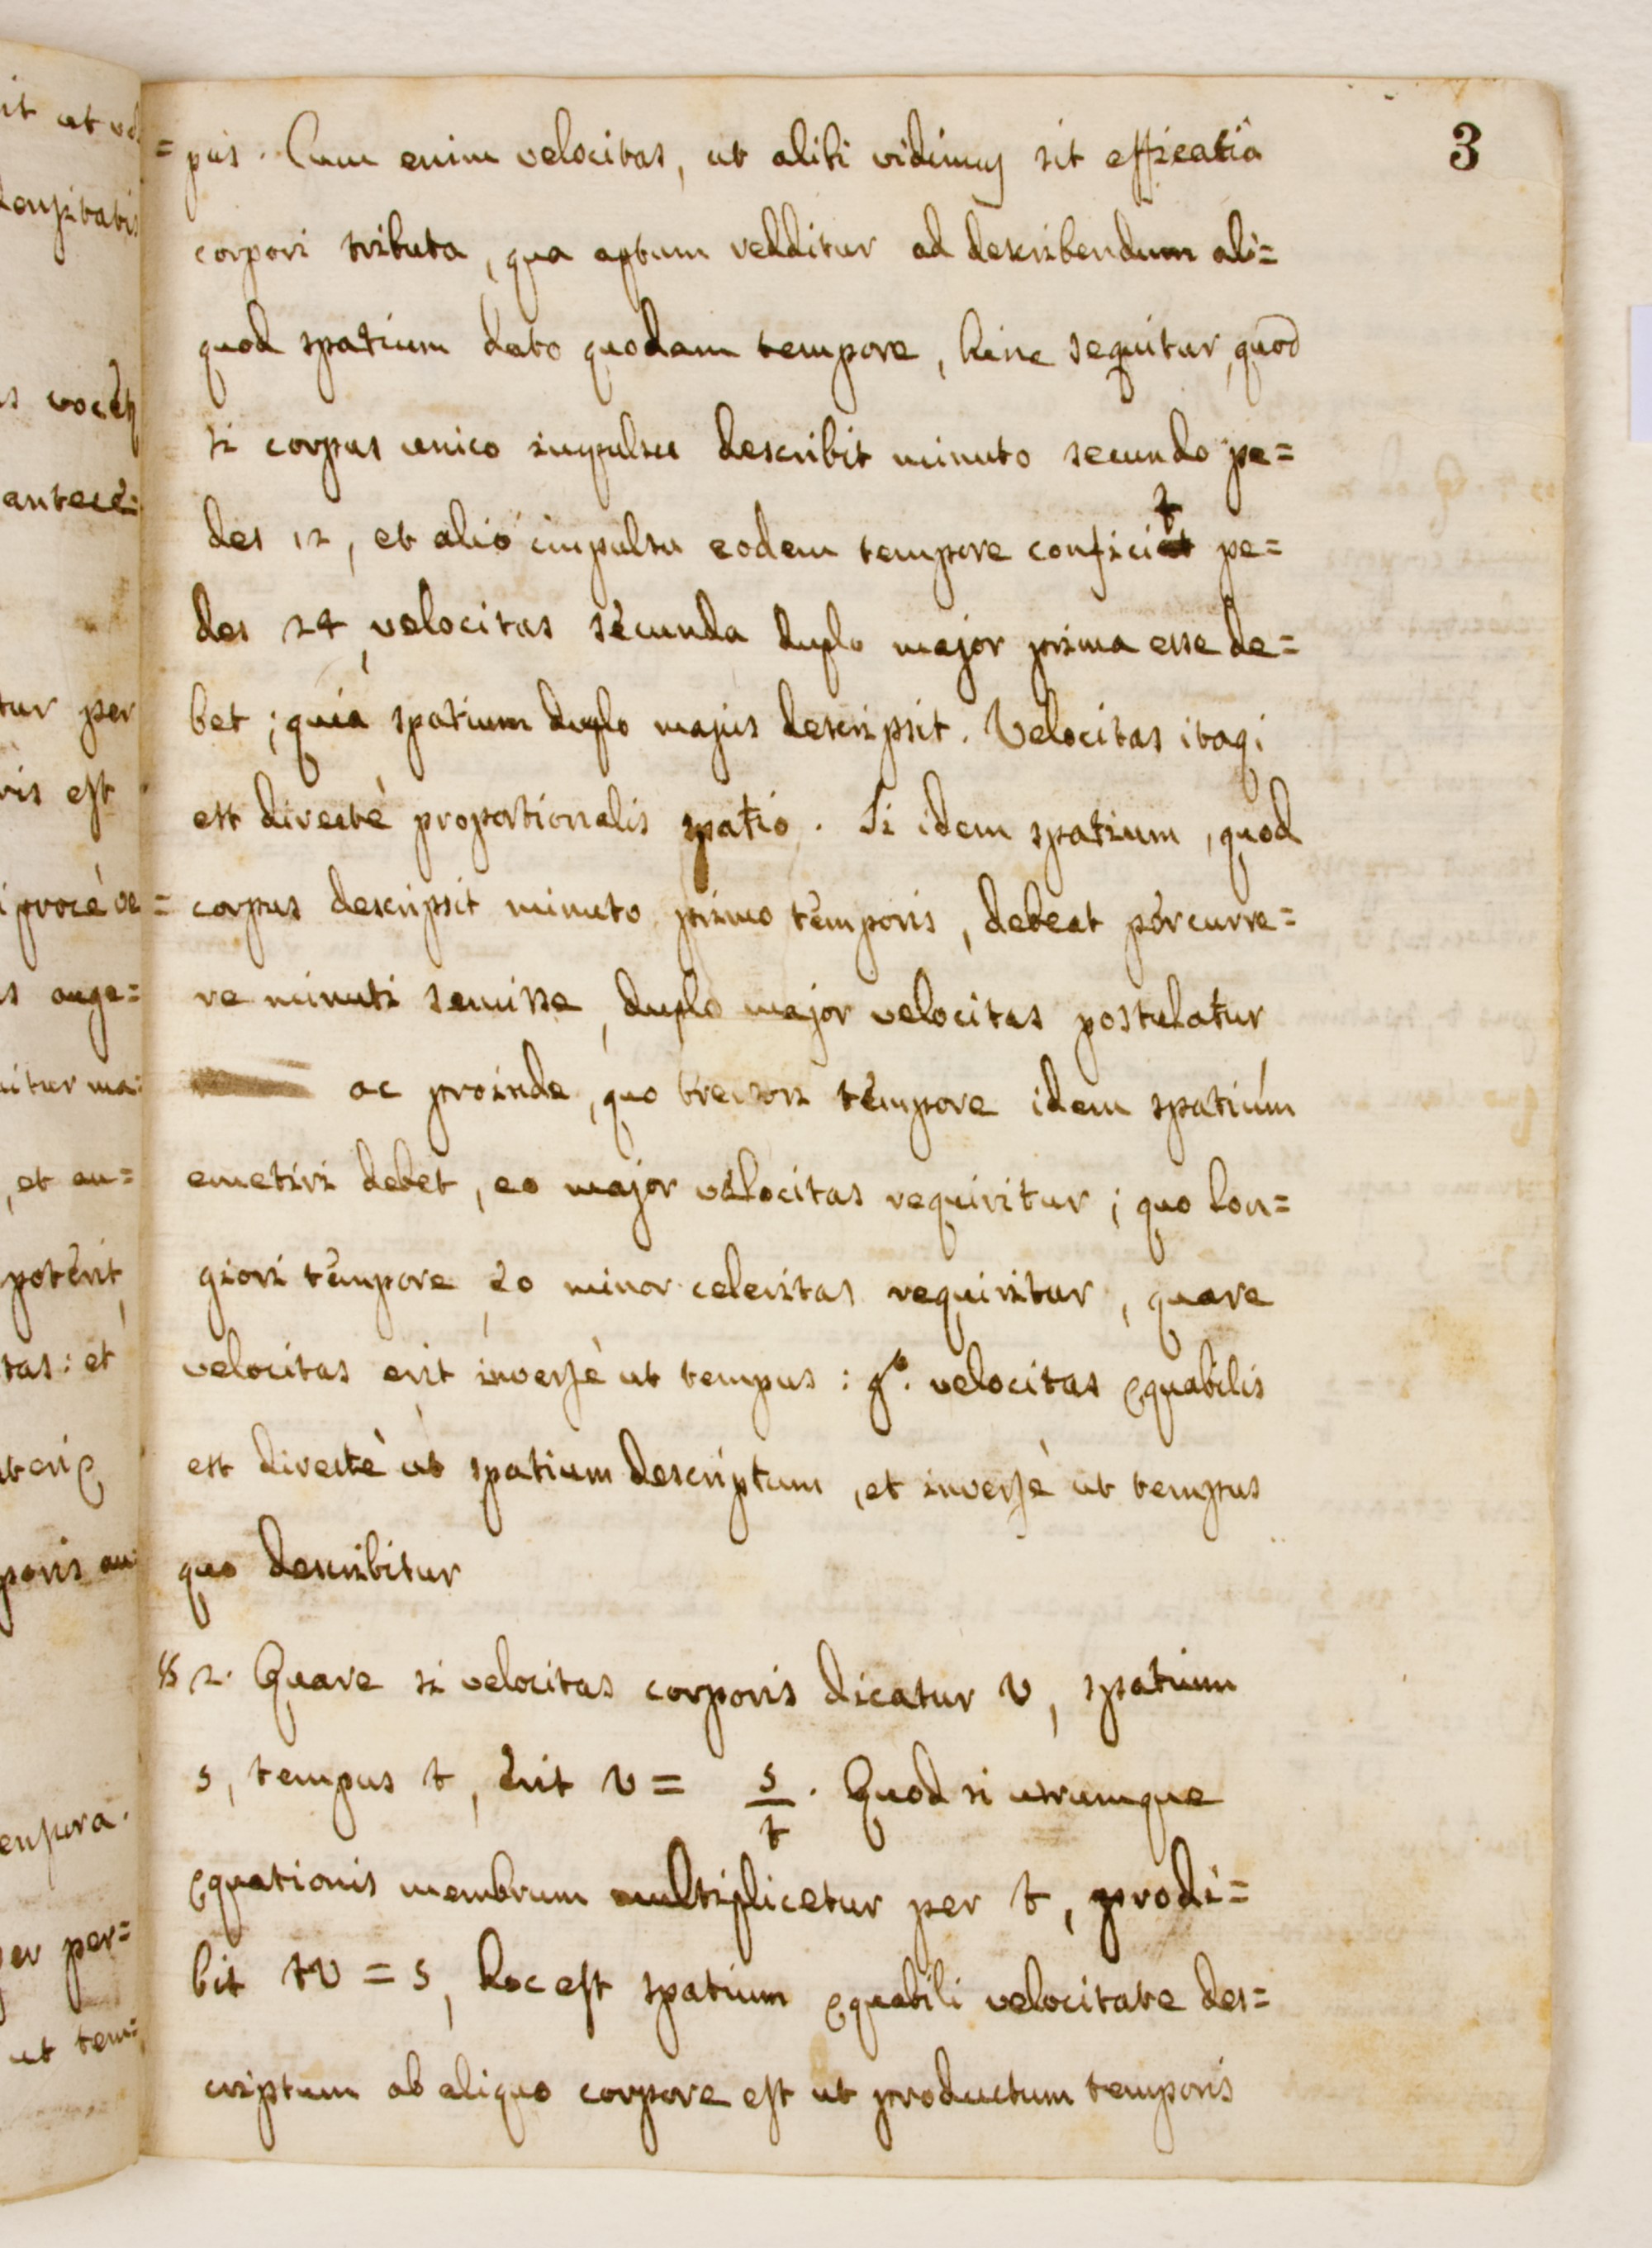 3
=pus. Cum enim velocitas, ut alibi vidimus sit efficatia
corpori tributa, qua aptum redditur ad describendum ali=
quod spatium dato quodam tempore, hinc sequitur, quod
si corpus unico impulsu describit minuto secundo pe=
des 12, et alio impulsu eodem tempore conficit pe=
des 24, velocitas secunda duplo major prima esse de=
bet; quia spatium duplo majus descripsit. Velocitas itaq;
est directè proportionalis spatio. Si idem spatium, quod
corpus descripsit minuto primo temporis, debeat percurre=
re minuti semisse, duplo major velocitas postulatur
ac proinde, quo breviori tempore idem spatium
emetiri debet, eo major velocitas requiritur; quo lon=
giori tempore, eo minor celeritas requiritur, quare
velocitas erit inversè ut tempus: gº. velocitas ęquabilis
est directè ut spatium descriptum, et inversè ut tempus
quo describitur
§ 2. Quare si velocitas corporis dicatur v, spatium
s, tempus t, erit v = s/t. Quod si utrumque
ęquationis membrum multiplicetur per t, prodi=
bit tv = s, hoc est spatium ęquabili velocitate des=
criptum ab aliquo corpore est ut productum temporis